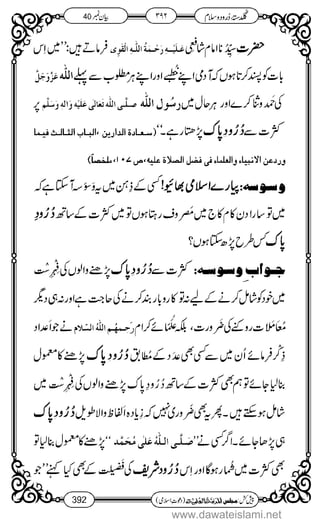 بیان نمبر 40
۳۹۲
گلدستۂ درود و سلام
حضرت سیّدُنا امام شافعی عَلَیْہِ رَحْمَۃُ اللہِ الْقَوِی فرماتے ہیں: ”میں اس
بات کو پسند کرتا ہوں کہ آدمی اپنے خطبے اور اپنے ہر مطلوب سے پہلے اللہ عَزَّوَجَلَّ
کی حمد وثنا کرے اور ہر حال میں رسول اللہ صلَّی اللہ تعالٰی علیہ واٰلہٖ وسلَّم پر
کثرت سے دُرُودِ پاک پڑھتا رہے۔“ (سعادۃ الدارین، الباب الثالث فیما
وردعن الانبیاء والعلماء فی فضل الصلاۃ علیہ، ص ۱۰۷، ملخصاً)
وسوسہ: پیارے اسلامی بھائیو! کسی کے ذہن میں یہ وسوسہ آسکتا ہے کہ
میں تو سارا دن کام کاج میں مصروف رہتا ہوں تو میں کثرت کے ساتھ دُرُودِ
پاک کس طرح پڑھ سکتا ہوں؟
جوابِ وسوسہ: کثرت سے دُرُودِ پاک پڑھنے والوں کی فہرست
میں خود کو شامل کرنے کے لیے نہ تو کاروبار بند کرنے کی حاجت ہے اور نہ ہی دیگر
مُعاملات روکنے کی ضرورت، بلکہ عُلَمائے کرام رَحِمَہُمُ اللہُ السَّلَام نے جو اَعداد
ذِکر فرمائے اُن میں سے کسی بھی عدد کے مُطابق دُرُودِ پاک پڑھنے کا معمول
بنالیا جائے تو ہم بھی کثرت کے ساتھ دُرُودِ پاک پڑھنے والوں کی فہرست میں
شامل ہوسکتے ہیں۔ پھر یہ بھی ضروری نہیں کہ زیادہ اَلفاظ والا طویل دُرُودِ پاک
ہی پڑھا جائے۔ اگر کسی نے ”صَلَّی اللہُ عَلٰی مُحَمَّد“ پڑھنے کا معمول بنالیا تو
بھی کثرت میں شمار ہوگا اور اس دُرُودِ شریف کی فضیلت کے بھی کیا کہنے ”جو
392
پیش کش: مجلس المدینۃ العلمیۃ (دعوتِ اسلامی)
www.dawateislami.net